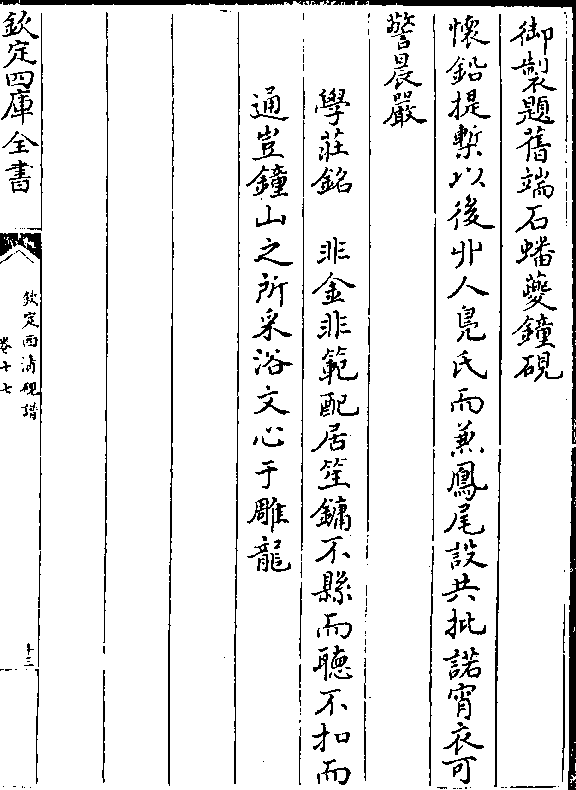 御製題舊端石蟠夔鐘硯
懷鉛提槧以後卝人鳧氏而兼鳳尾設共批諾宵衣可
警晨嚴
學莊銘　非金非範配居笙鏞不縣而聽不扣而
通豈鐘山之所采浴文心于雕龍
欽定四庫全書
欽定西清硯譜
卷十七
十三